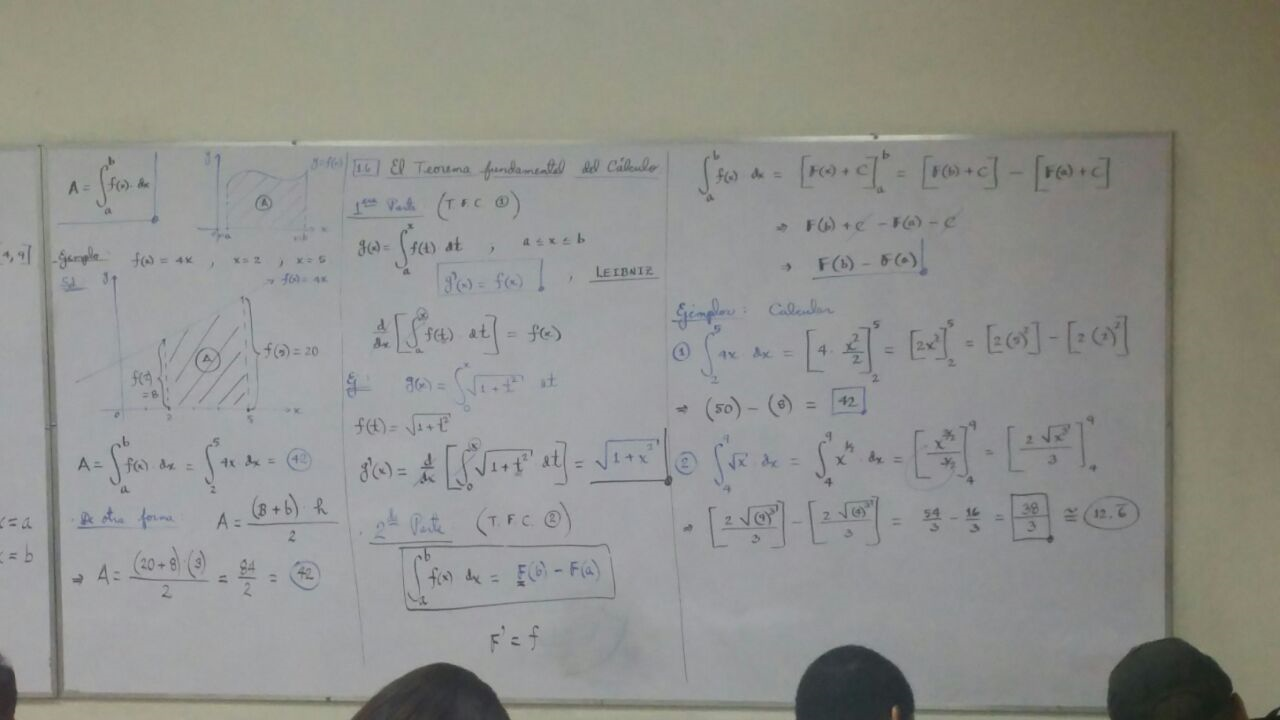 4, 9]
x = a
x = b
A = ∫_a^b f(x) · dx
y
y = f(x)
A
x=a
x=b
x
- Ejemplo: f(x) = 4x , x = 2 , x = 5
Sol.
y
→ f(x) = 4x
A
f(5) = 20
f(2) = 8
0
2
5
x
A = ∫_a^b f(x) · dx = ∫_2^5 4x dx = 42
· De otra forma: A = (B + b) · h / 2
⇒ A = (20 + 8) · (3) / 2 = 84/2 = 42
1.6 El Teorema fundamental del Cálculo
1era Parte (T.F.C. ①)
g(x) = ∫_a^x f(t) dt , a ≤ x ≤ b
g'(x) = f(x) , LEIBNIZ
d/dx [∫_a^x f(t) dt] = f(x)
Ej: g(x) = ∫_0^x √(1 + t²) dt
f(t) = √(1 + t²)
g'(x) = d/dx [∫_0^x √(1 + t²) dt] = √(1 + x²)
· 2da Parte (T.F.C. ②)
∫_a^b f(x) dx = F(b) - F(a)
F' = f
∫_a^b f(x) dx = [F(x) + C]_a^b = [F(b) + C] - [F(a) + C]
⇒ F(b) + C - F(a) - C
⇒ F(b) - F(a)
Ejemplos: Calcular
① ∫_2^5 4x · dx = [4 · x²/2]_2^5 = [2x²]_2^5 = [2(5)²] - [2(2)²]
⇒ (50) - (8) = 42
② ∫_4^9 √x · dx = ∫_4^9 x^(1/2) · dx = [x^(3/2) / (3/2)]_4^9 = [2√(x³) / 3]_4^9
⇒ [2√((9)³) / 3] - [2√((4)³) / 3] = 54/3 - 16/3 = 38/3 ≅ 12.6